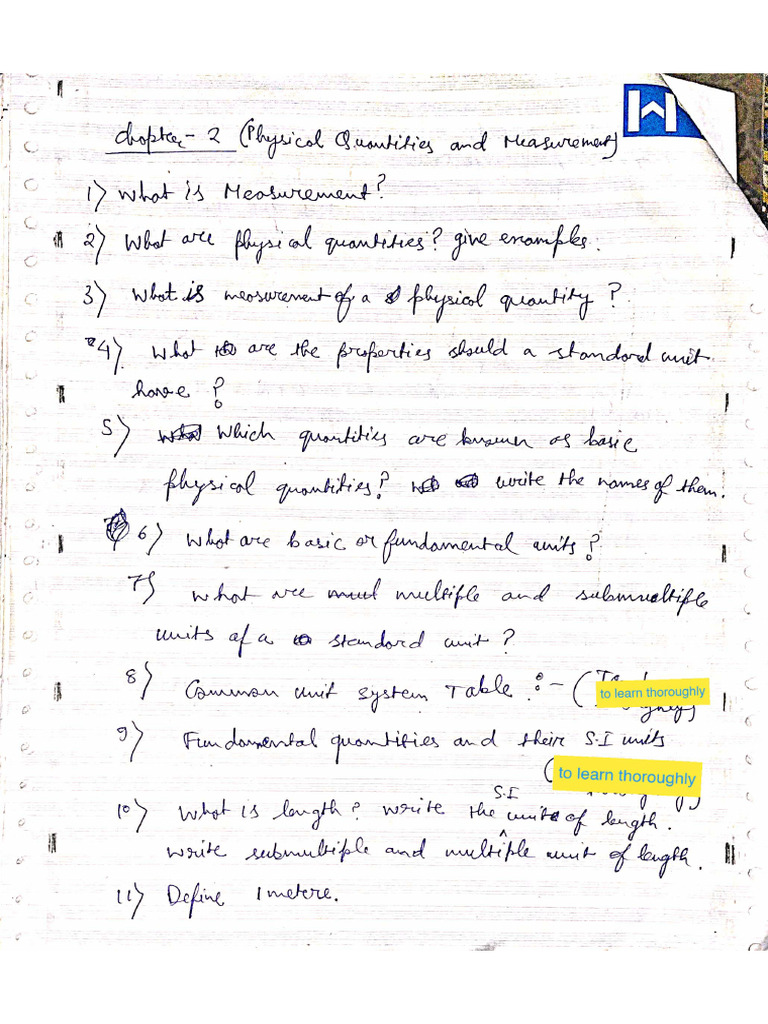 Chapter - 2 (Physical Quantities and Measurement)
1) What is Measurement?
2) What are physical quantities? give examples.
3) What is measurement of a physical quantity?
4) What are the properties should a standard unit
have?
5) Which quantities are known as basic
physical quantities? write the names of them.
6) What are basic or fundamental units?
7) What are multiple and submultiple
units of a standard unit?
8) Common unit system Table :- (
to learn thoroughly
9) Fundamental quantities and their S.I units
(to learn thoroughly
10) What is length? write the S.I units of length.
write submultiple and multiple unit of length.
11) Define 1 metere.